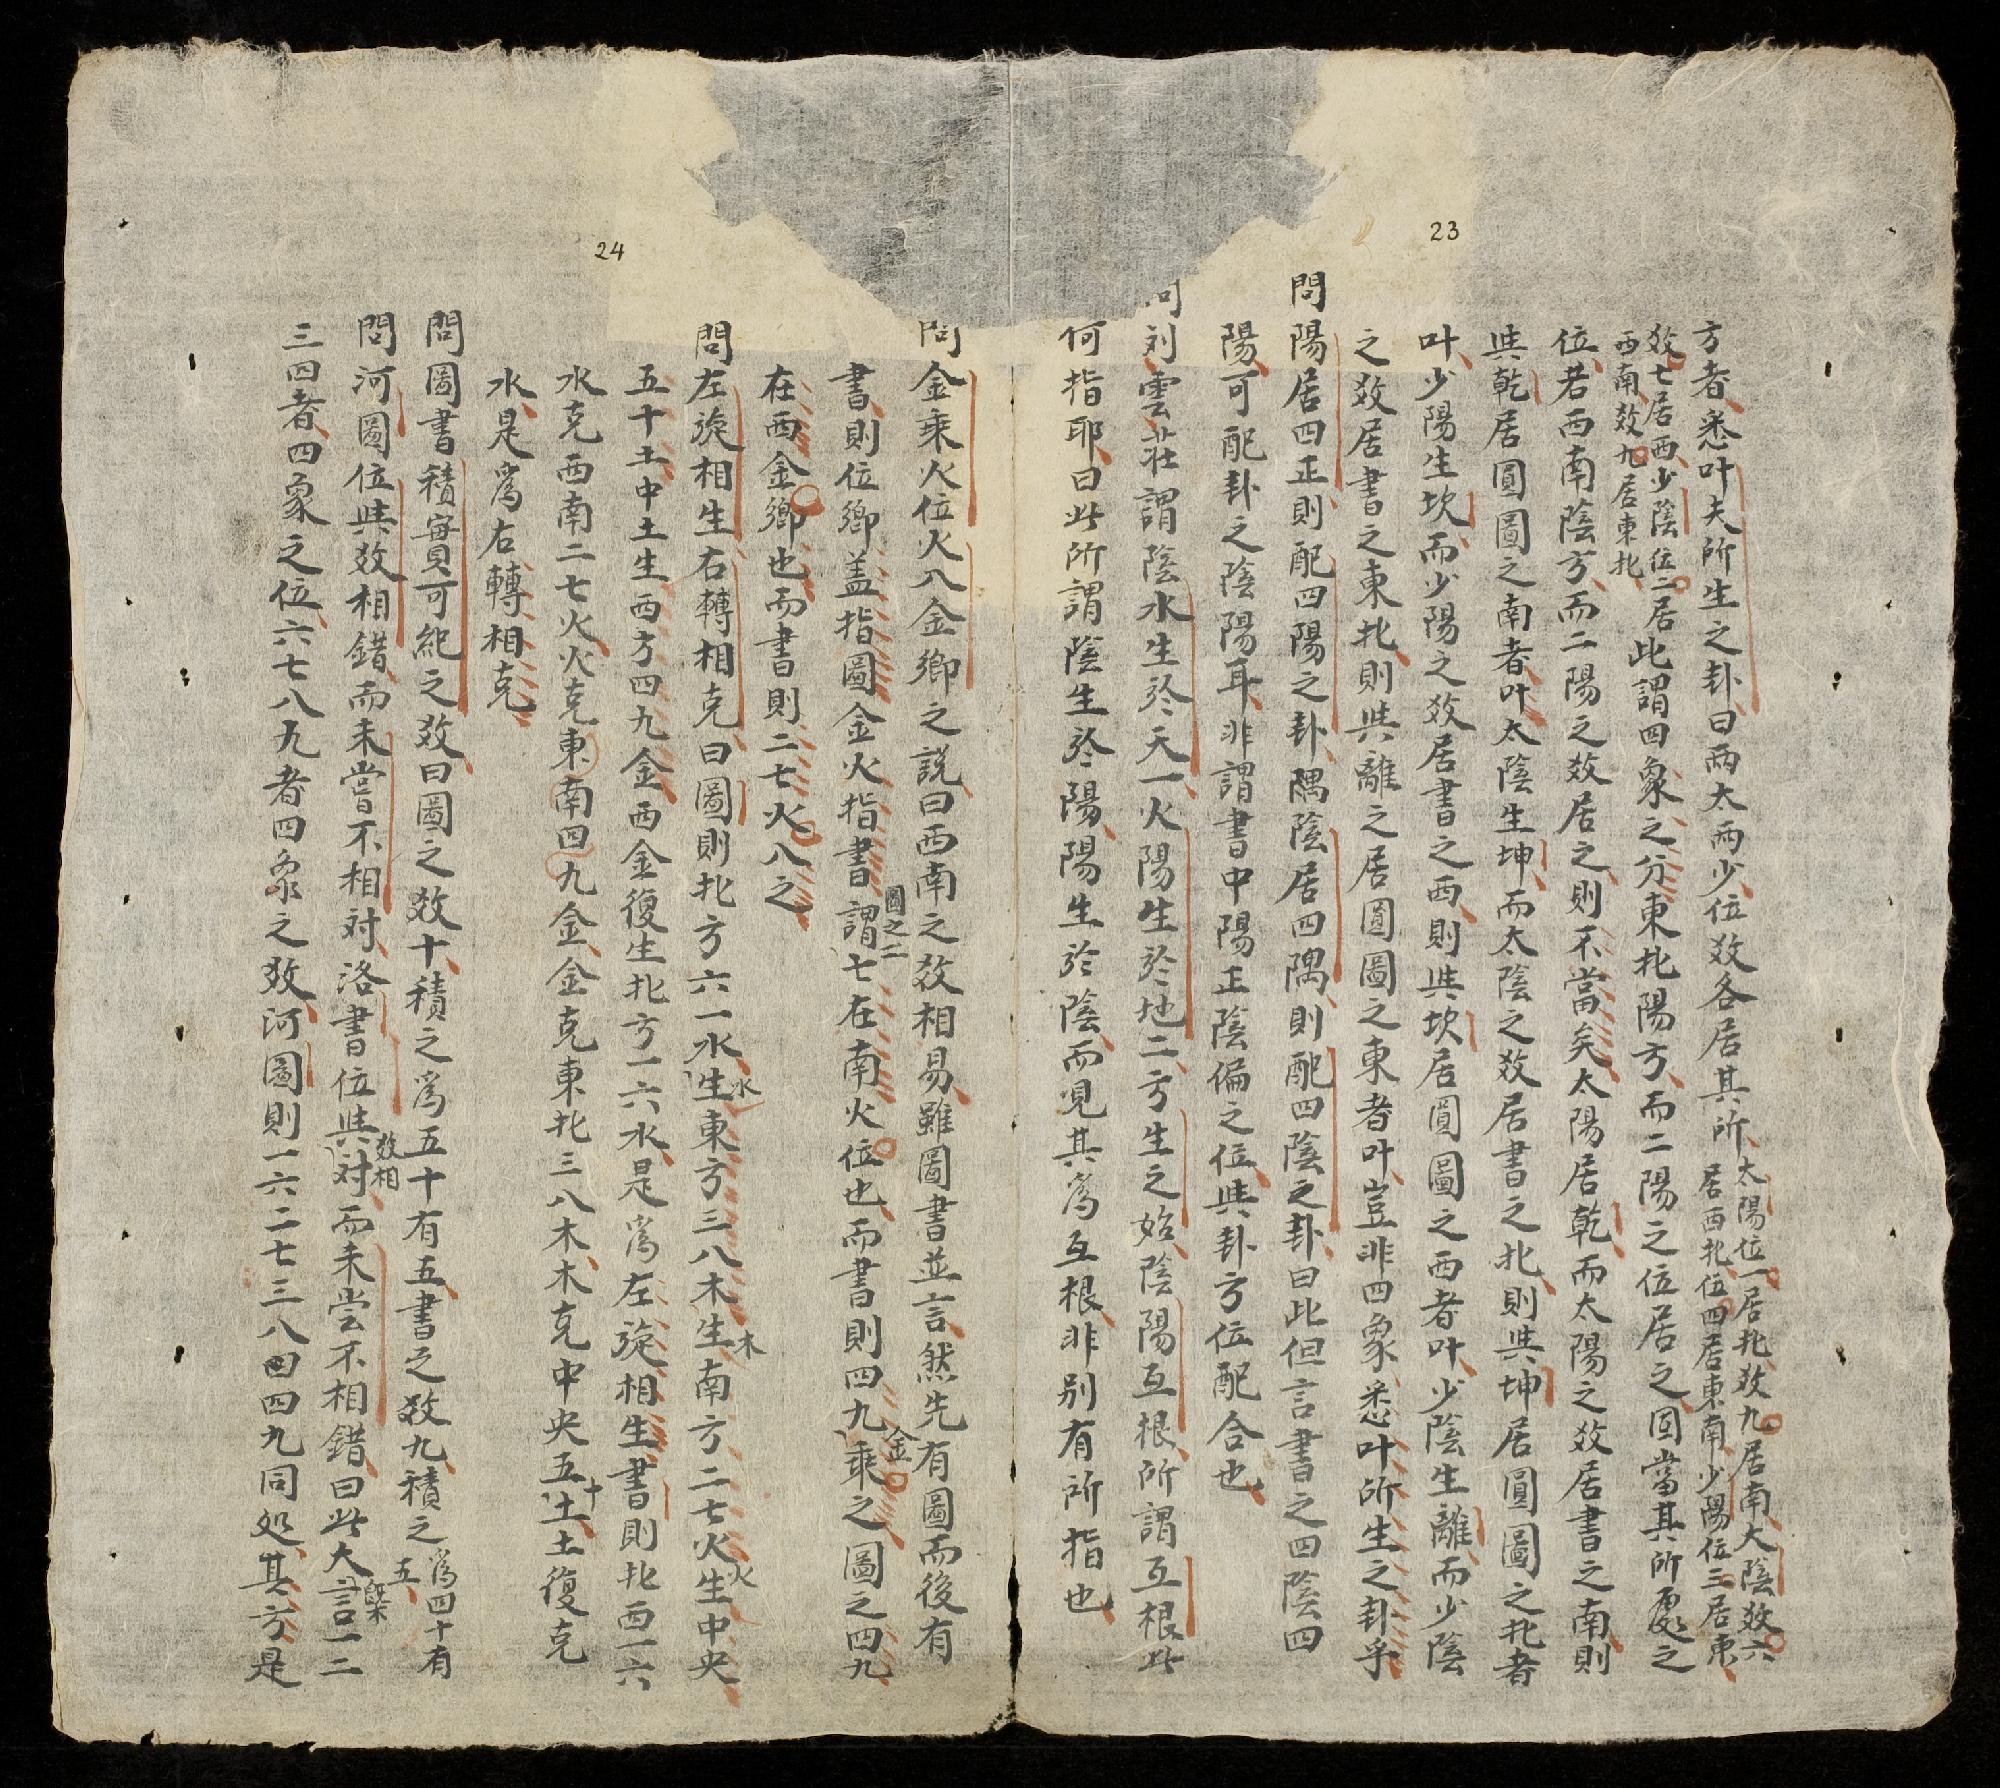 23
方者悉叶夫所生之卦曰兩太兩少位效各居其所太陽位一居北效九居南太陰效六
居西北位四居東南少陽位三居東
效七居西少陰位二居
西南效九居東北
此謂四象之分東北陽方而二陽之位居之固當其所處之
位若西南陰方而二陽之效居之則不當矣太陽居乾而太陽之效居書之南則
與乾居圓圖之南者叶太陰生坤而太陰之效居書之北則與坤居圓圖之北者
叶少陽生坎而少陽之效居書之西則與坎居圓圖之西者叶少陰生離而少陰
之效居書之東北則與離之居圓圖之東者叶豈非四象悉叶所生之卦乎
問陽居四正則配四陽之卦隅陰居四隅則配四陰之卦曰此但言書之四陰四
陽可配卦之陰陽耳非謂書中陽正陰偏之位與卦方位配合也
問刘雲莊謂陰水生於天一火陽生於地二方生之始陰陽互根所謂互根此
何指耶曰此所謂陰生於陽陽生於陰而見其為互根非别有所指也
24
問金乘火位火入金鄉之說曰西南之效相易雖圖書並言然先有圖而後有
書則位鄉盖指圖金火指書謂圖之二七在南火位也而書則四九金乘之圖之四九
在西金鄉也而書則二七火八之
問左旋相生右轉相克曰圖則北方六一水水生東方三八木木生南方二七火火生中央
五十土中土生西方四九金西金復生北方一六水是為左旋相生書則北西一六
水克西南二七火火克東南四九金金克東北三八木木克中央五十土土復克
水是為右轉相克
問圖書積實可紀之效曰圖之效十積之為五十有五書之效九積之為四十有
五
問河圖位與效相錯而未嘗不相对洛書位與效相対而未尝不相錯曰此大槩言一二
三四者四象之位六七八九者四象之效河圖則一六二七三八四四九同处其方是